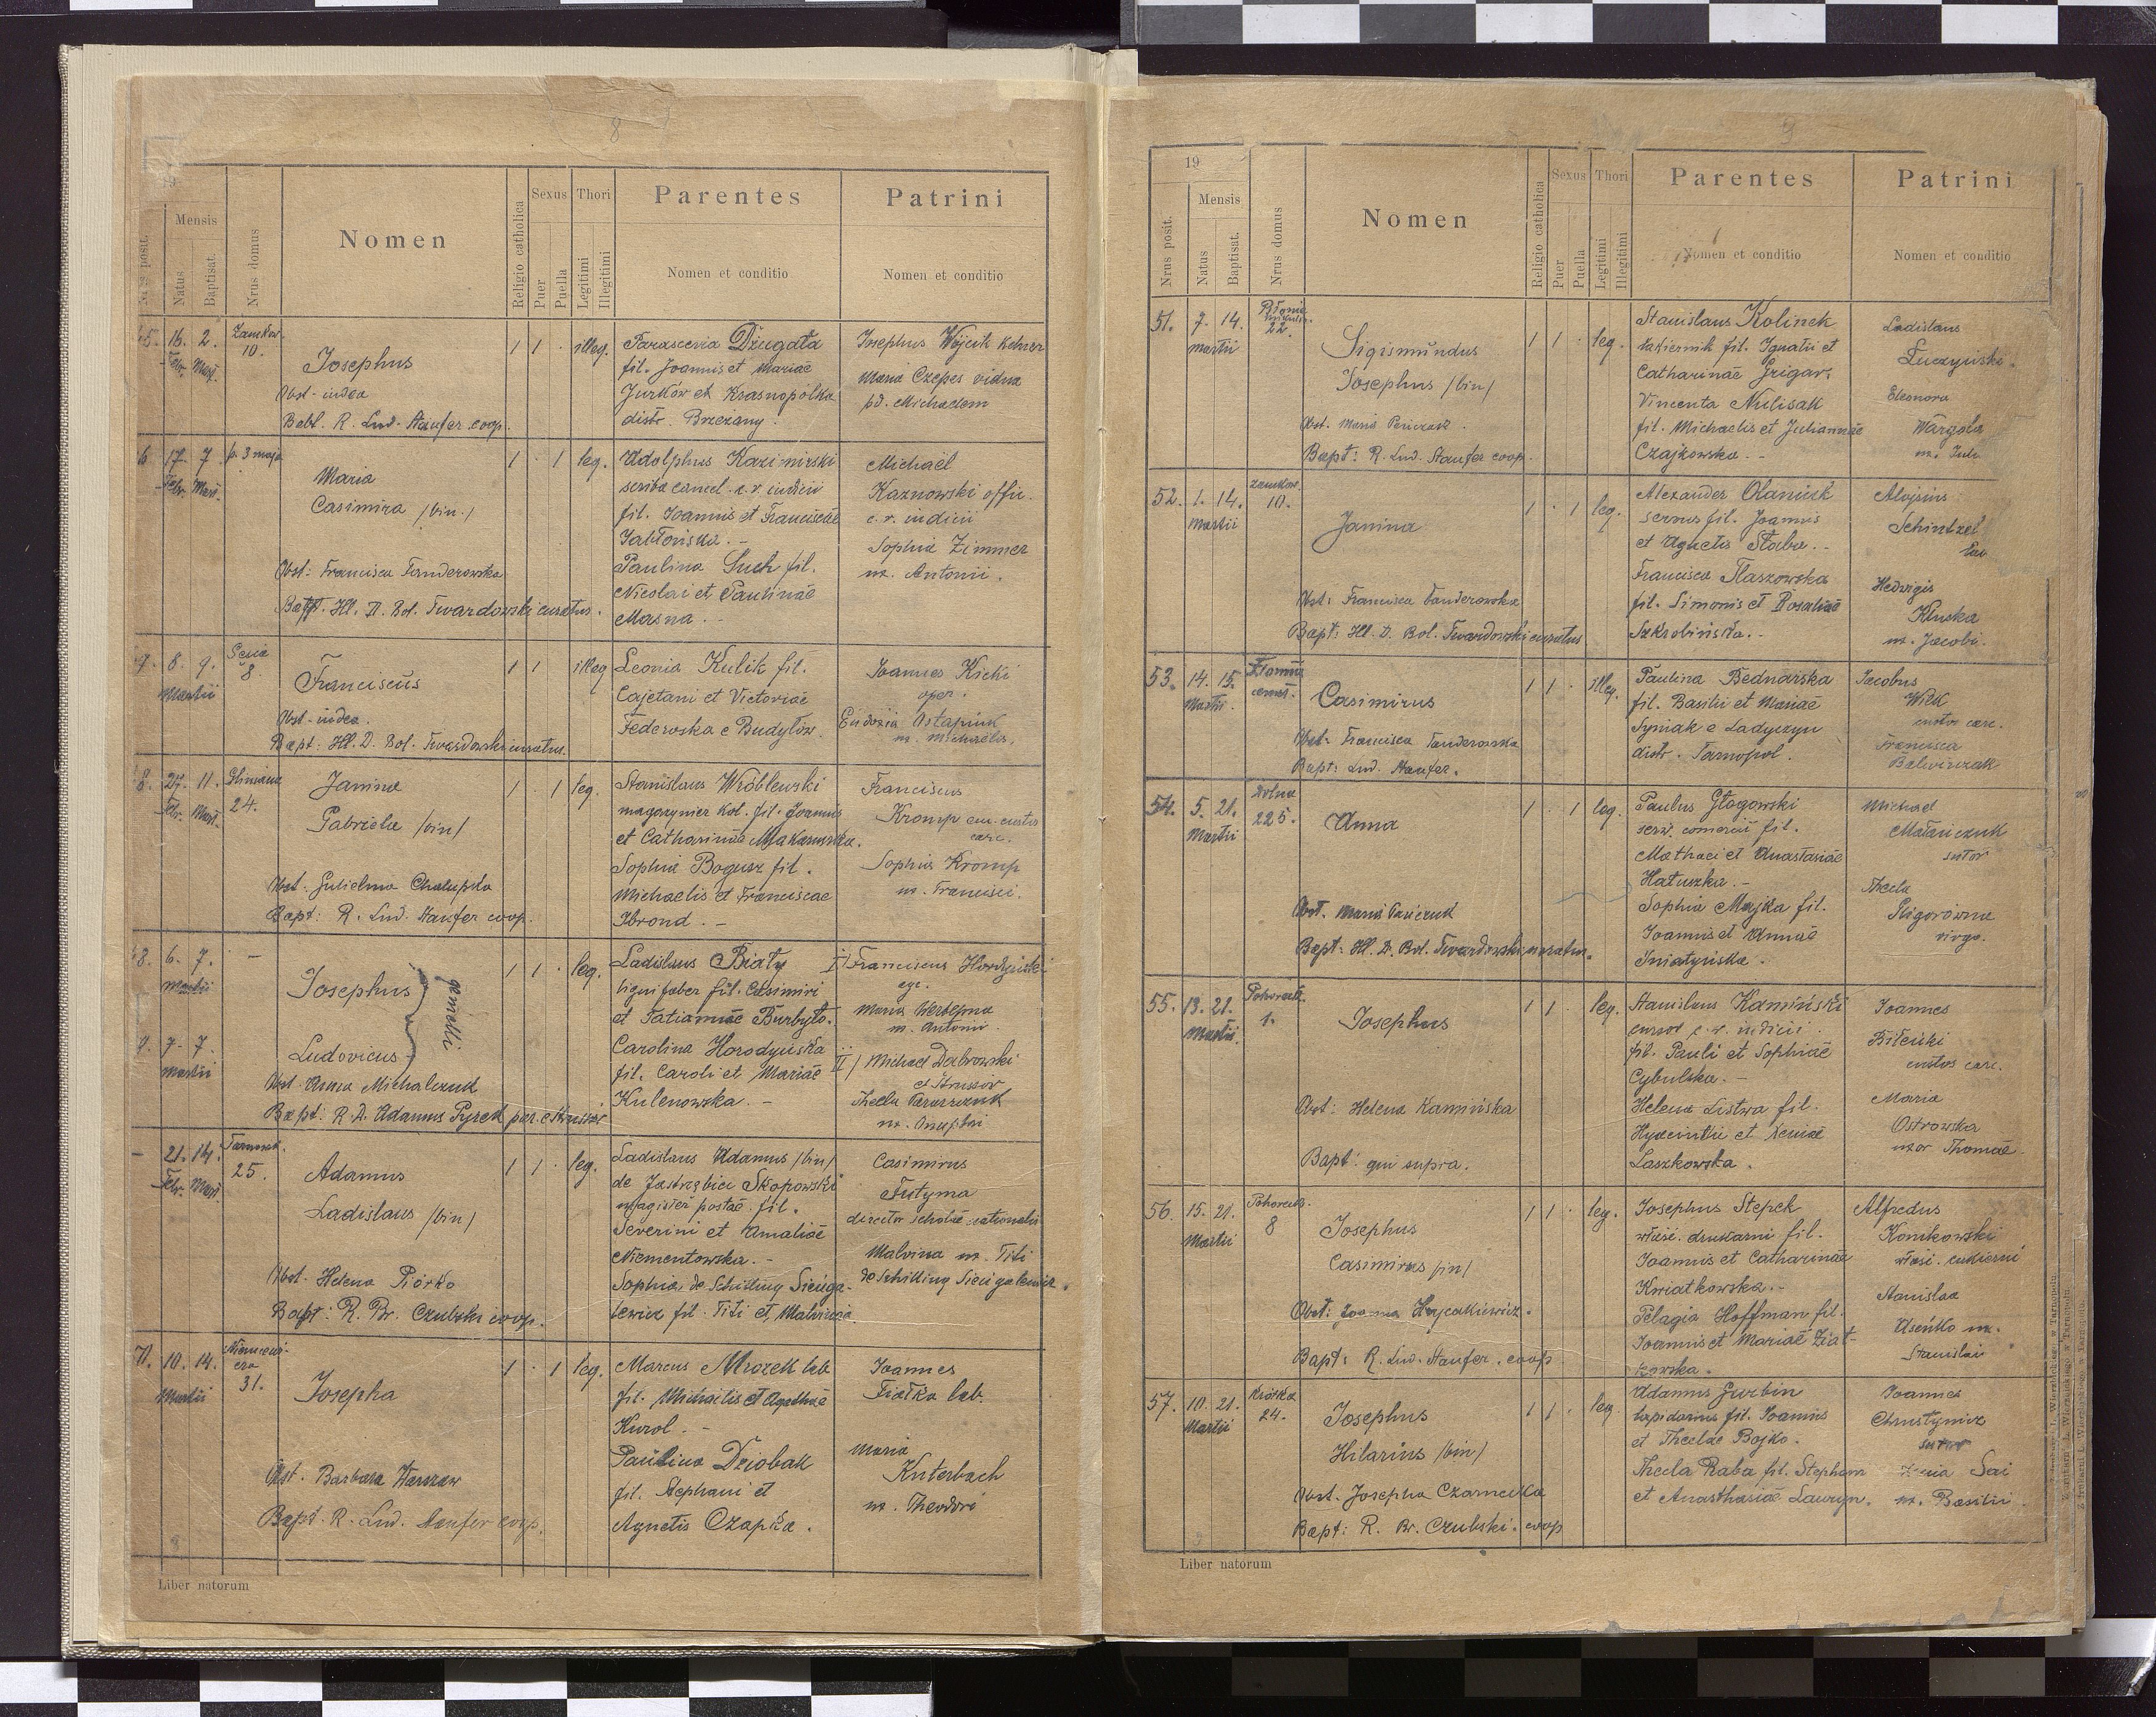 8
Mensis
Nrus posit.
Natus
Baptisat.
Nrus domus
Nomen
Religio catholica
Sexus
Puer
Puella
Thori
Legitimi
Illegitimi
Parentes
Nomen et conditio
Patrini
Nomen et conditio
5. 16. 2. Febr. Mart.
Zamkow. 10.
Josephus
Obst. iudea
Babt. R. Lud. Staufer coop.
1 1 · illeg.
Parascevia Długała
fil. Joannis et Mariae
Jurków et Krasnopolka
distr. Brzeżany.
Josephus Wójcik kelner
Maria Czepes vidua
pd. Michaelem
6 17. 7 Febr. Mart.
p. 3 maja
Maria
Casimira /bin./
Obst: Francisca Fanderowska
Bapt. Ill. D. Bol. Twardowski curatus.
1 · 1 leg.
Adolphus Kazimirski
scriba cancel. c. r. iudicii
fil. Joannis et Franciscae
Jabłońska. -
Paulina Such fil.
Nicolai et Paulinae
Masna. -
Michael
Kaznowski offic.
c. r. iudicii
Sophia Zimmer
ux. Antonii.
7. 8. 9. Martii
8.
Franciscus
Obst. iudea.
Bapt: Ill. D. Bol. Twardowski curatus.
1 1 illeg
Leonia Kulik fil.
Cajetani et Victoriae
Federoska e Budyłów.
Joannes Kicki
oper.
Eudoxia Ostapiuk
ux. Michaelis.
8. 27. 11. Febr. Mart.
24.
Janina
Gabriela /bin/
Obst. Gulielma Chałupska
Bapt: R. Lud. Staufer coop.
1 · 1 leg.
Stanislaus Wróblewski
magazynier kol. fil. Joannis
et Catharinae
Sophia Bogusz fil.
Michaelis et Franciscae
Zbrond. -
Franciscus
Kromp em. custos
carc.
Sophia Kromp
ux. Francisci.
8. 6. 7. Martii
-
Josephus
gemelli
9. 7. 7. Martii
Ludovicus
Obst. Anna Michalczuk
Bapt: R. D. Adamus Pyrek par. e Strussów
1 1 · leg.
Ladislaus Biały
lignifaber fil. Casimiri
et Tatiannae Burbyło.
Carolina Horodyńska
fil. Caroli et Mariae
Kulenowska. -
I/ Franciscus Horodyński
agr.
Maria Werbepna
ux. Antonii.
II/ Michael Dąbrowski
e Strussów
Thecla Tarasczuk
ux. Onuphri
- 21. 14. Febr. Mart.
25.
Adamus
Ladislaus /bin/
Obst. Helena Piórko
Bapt: R. Br. Czubski coop.
1 1 · leg.
Ladislaus Adamus /bin/
de Jastrzębiec Skopowski
magister postae fil.
Severini et Amaliae
Niementowska. -
Sophia de Schilling Sienga-
lewicz fil. Titi et Malvinae.
Casimirus
Tutyma
director scholae nationalis
Malvina ux. Titi
de Schilling Siengalewicz.
71. 10. 14. Martii
31.
Josepha
Obst. Barbara Warszaw
Bapt. R. Lud. Staufer coop.
1 · 1 leg.
Marcus Mrozek lab
fil. Michaelis et Agathae
Kurol. -
Paulina Dziobak
fil. Stephani et
Agnetis Czapka.
Joannes
Fiałka lab.
Maria
Kuterbach
ux. Theodori
Liber natorum
9
19
Nrus posit.
Mensis
Natus
Baptisat.
Nrus domus
Nomen
Religio catholica
Sexus
Puer
Puella
Thori
Legitimi
Illegitimi
Parentes
Nomen et conditio
Patrini
Nomen et conditio
51. 7. 14. Martii
22.
Sigismundus
Josephus /bin/
Obst. Maria Pańczuk.
Bapt: R. Lud. Staufer coop.
1 1 · leg.
Stanislaus Kolinek
fil. Ignatii et
Catharinae Grigar.
Vincenta Nulisak
fil. Michaelis et Juliannae
Czajkowska. -
Ladislaus
Łuczyński.
Eleonora
Wargola
ux. Jul.
52. 1. 14. Martii
Zamkow. 10.
Janina
Obst: Francisca Fanderowska
Bapt: Ill. D. Bol. Twardowski curatus
1 · 1 leg.
Alexander Olaniuk
servus fil. Joannis
et Agnetis Słaba. -
Francisca Ślaszowska
fil. Simonis et Rosaliae
Szkrobińska. -
Alojsius
Schintzel
Hedvigis
Kluska
ux. Jacobi.
53. 14. 15. Martii
Casimirus
Obst. Francisca Fanderowska
Bapt: Lud. Staufer.
1 1 · illeg.
Paulina Bednarska
fil. Basilii et Mariae
Syniak e Ladyczyn
distr. Tarnopol.
Jacobus
Wilk
custos carc.
Francisca
Balwirczak
54. 5. 21. Martii
Dolna 225.
Anna
Obst. Maria Pańczuk
Bapt: Ill. D. Bol. Twardowski curatus.
1 · 1 leg.
Paulus Głogowski
serv. comercii fil.
Mathaei et Anastasiae
Hatuszka. -
Sophia Majka fil.
Joannis et Annae
Sniatyńska.
Michael
Matańczuk
sutor
Thecla
Gligorówna
virgo.
55. 13. 21. Martii
1.
Josephus
Obst: Helena Kamińska
Bapt: qui supra.
1 1 · leg.
Stanislaus Kamiński
cursor c. r. iudicii.
fil. Pauli et Sophiae
Cybulska. -
Helena Listwa fil.
Hyacinthi et Xeniae
Laszkowska.
Joannes
Biłeńki
custos carc.
Maria
Ostrowska
uxor Thomae.
56. 15. 21. Martii
8
Josephus
Casimirus /in/
Obst: Joanna Hajcakiewicz.
Bapt: R. Lud. Staufer. coop
1 1 · leg.
Josephus Stepek
właśc. drukarni fil.
Joannis et Catharinae
Kwiatkowska. -
Pelagia Hoffman fil.
Joannis et Mariae Ziat-
kowska.
Alfredus
Konikowski
właśc. cukierni
Stanislaa
Aseńko ux.
Stanislai
57. 10. 21. Martii
Krótka 24.
Josephus
Hilarius /bin/
Obst. Josepha Czarnecka
Bapt: R. Br. Czubski. coop
1 1 · leg
Adamus Gurbin
lapidarius fil. Joannis
et Theclae Bojko.
Thecla Raba fil. Stephani
et Anasthasiae Lauryn.
Joannes
Chrustynicz
sutor
Sai
ux. Basilii.
Liber natorum